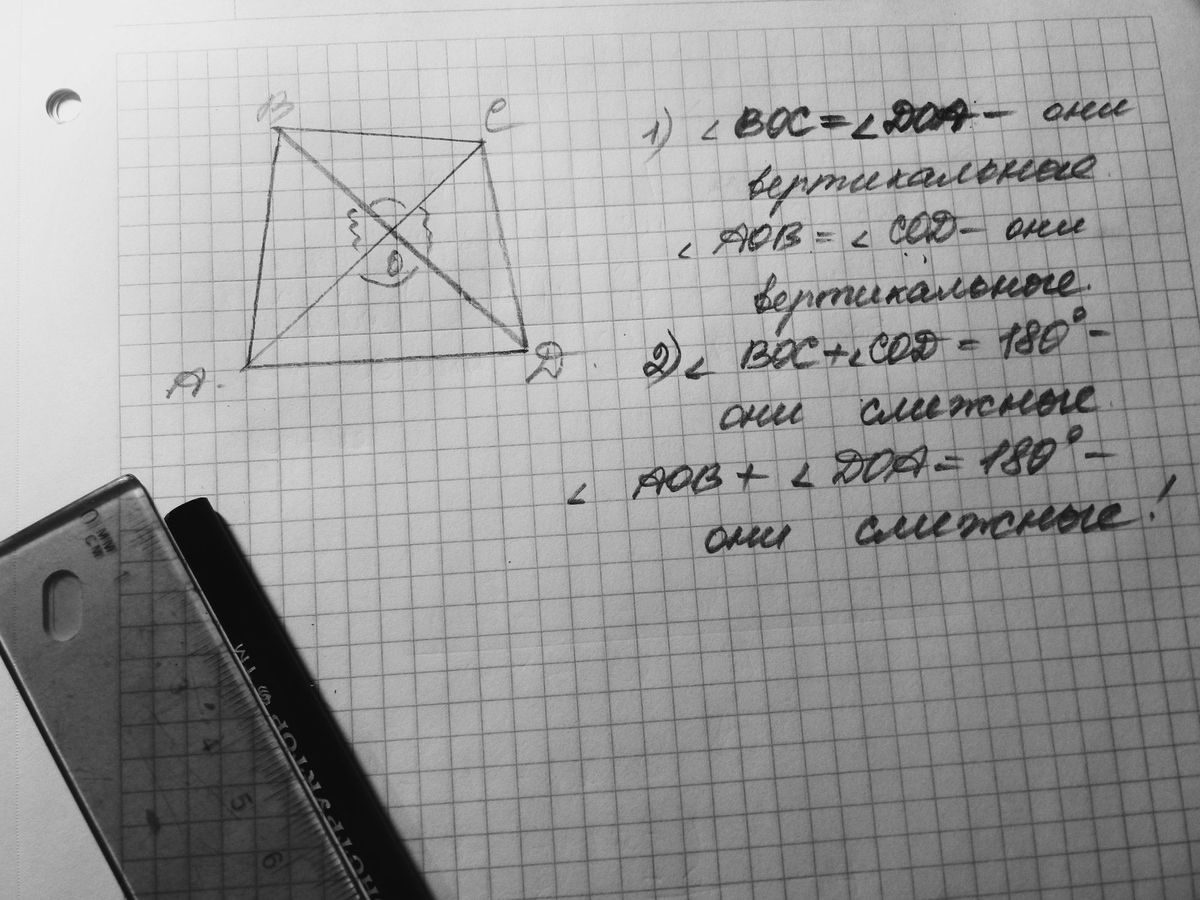 B
C
O
A
D
1) ∠ BOC = ∠ DOA – они
вертикальные
∠ AOB = ∠ COD – они
вертикальные.
2) ∠ BOC + ∠ COD = 180° –
они смежные
∠ AOB + ∠ DOA = 180° –
они смежные!
4
5
6